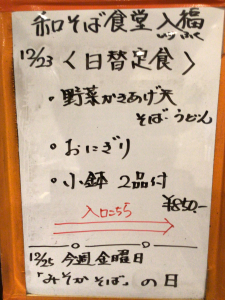 和そば食堂 入福
12/23 〈日替定食〉
・野菜かきあげ天
そば・うどん
・おにぎり
・小鉢 2品付
¥850-
入口こちら
12/25 今週金曜日
「みそかそば」の日